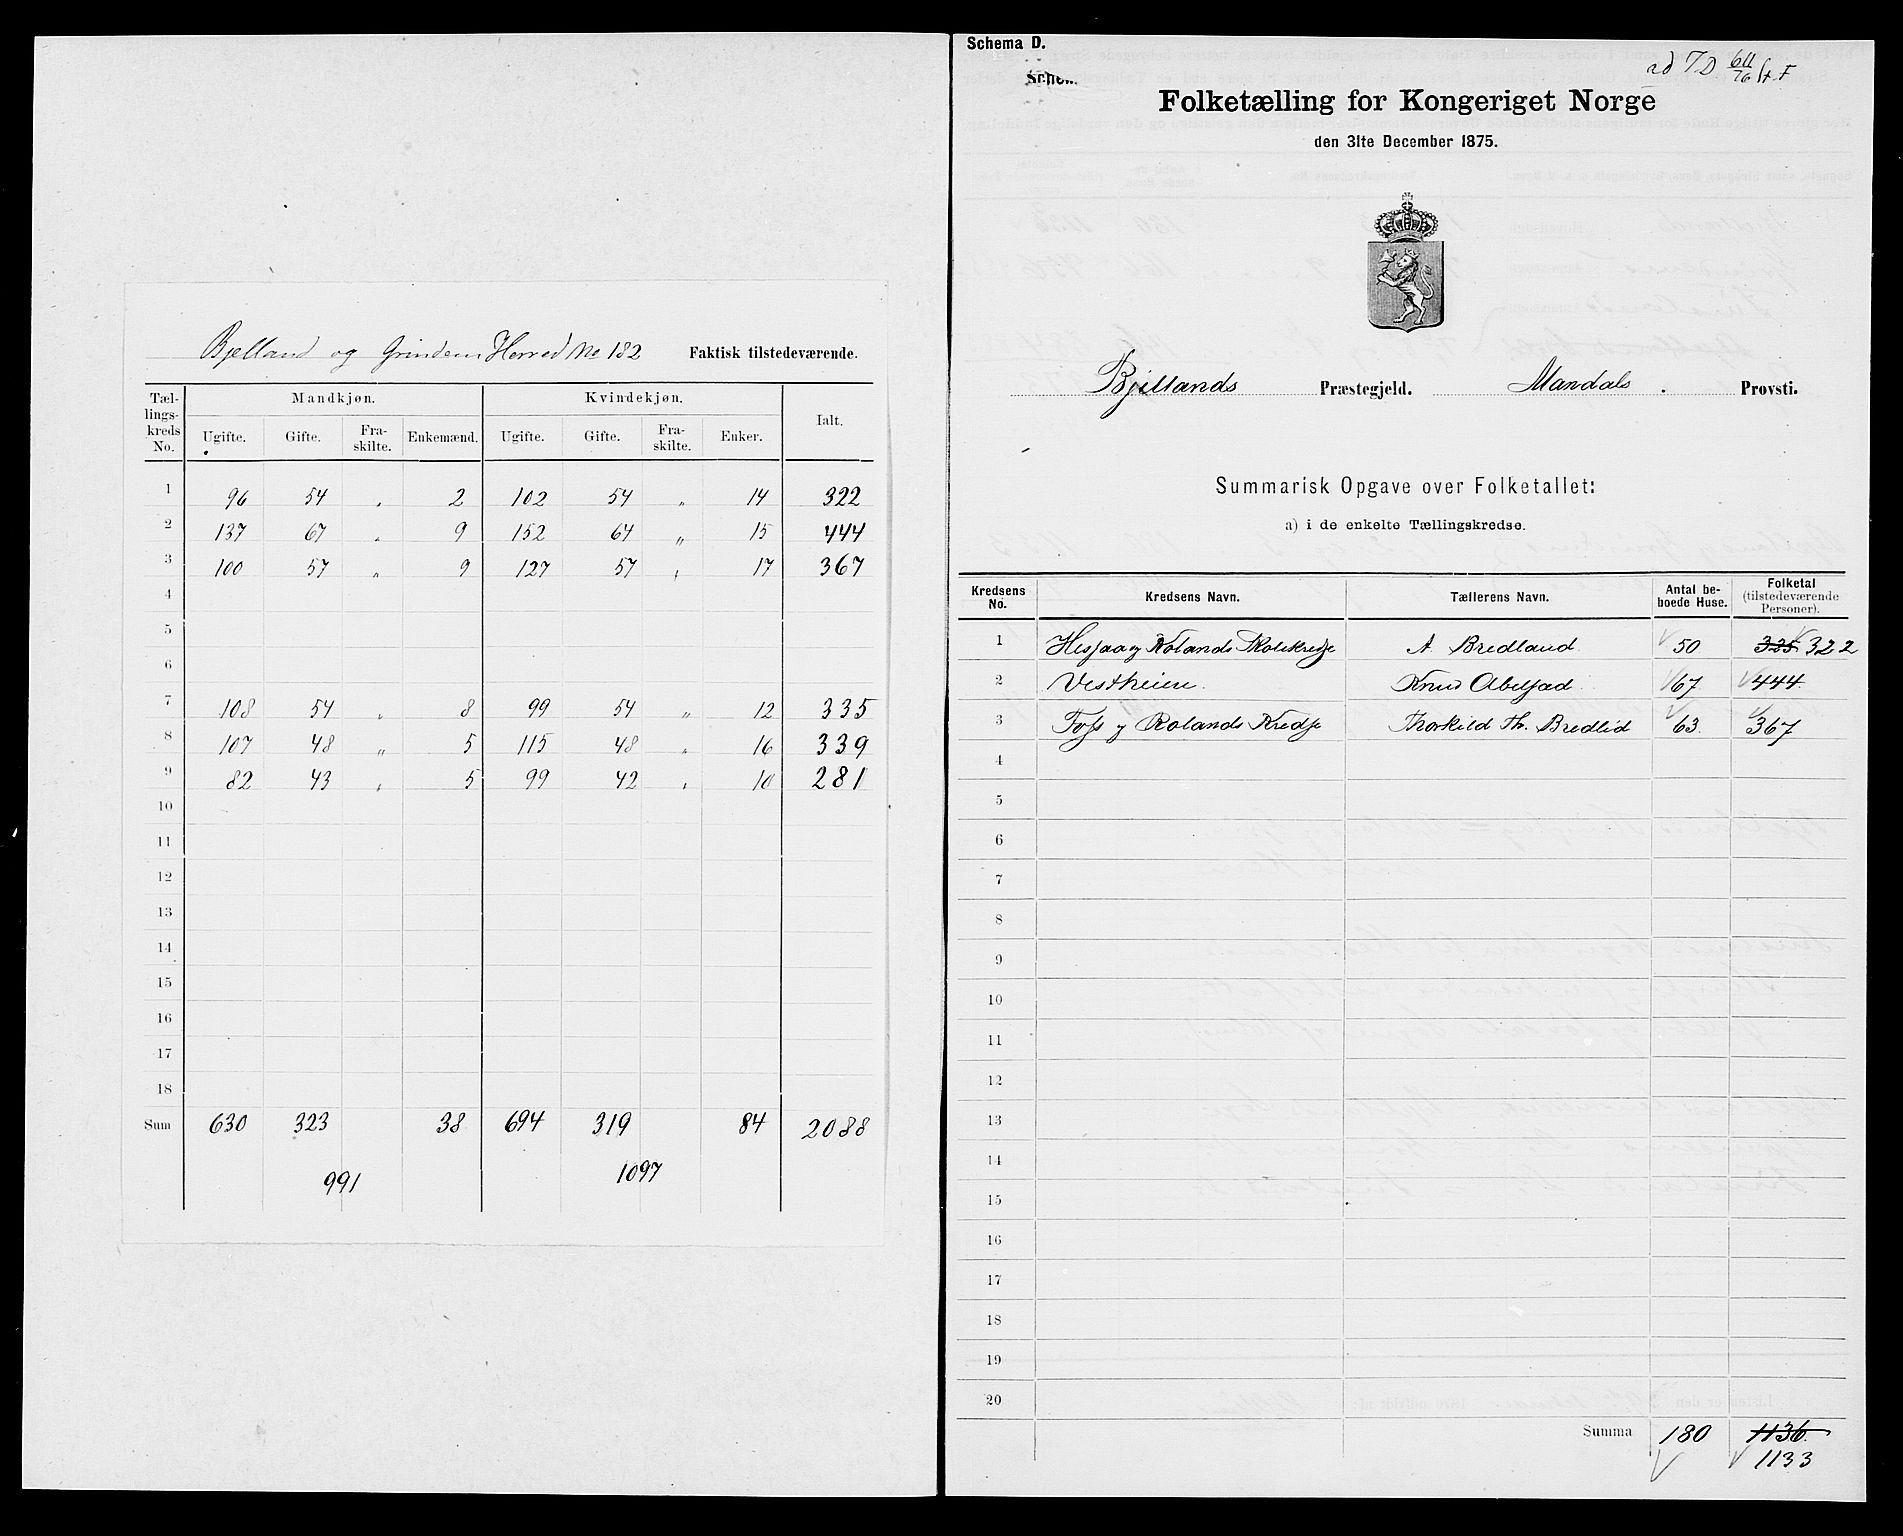 Bjelland og Grindem Herred No 182 Faktisk tilstedeværende.
Tæl-lings-kreds No. Mandkjøn. Kvindekjøn. Ialt.
Ugifte. Gifte. Fra-skilte. Enkemænd. Ugifte. Gifte. Fra-skilte. Enker.
1 96 54 „ 2 102 54 „ 14 322
2 137 67 „ 9 152 64 „ 15 444
3 100 57 „ 9 127 57 „ 17 367
4
5
6
7 108 54 „ 8 99 54 „ 12 335
8 107 48 „ 5 115 48 „ 16 339
9 82 43 „ 5 99 42 „ 10 281
10
11
12
13
14
15
16
17
18
Sum 630 323 38 694 319 84 2088
991 1097
Schema D.
Folketælling for Kongeriget Norge
den 31te December 1875.
Bjellands Præstegjeld. Mandals Provsti.
Summarisk Opgave over Folketallet:
a) i de enkelte Tællingskredse.
Kredsens No. Kredsens Navn. Tællerens Navn. Antal be-boede Huse. Folketal (tilstedeværende Personer).
1 Hesjaa og Rolands Skolekredse A. Bredland 50 325 322
2 Vestheien. Knud Abelsæd 67 444
3 Foss og Rolands Kredse Thorkild Th. Bredlid 63. 367
4
5
6
7
8
9
10
11
12
13
14
15
16
17
18
19
20
Summa 180 1136.
1133